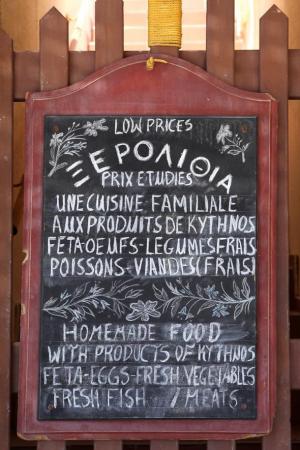 LOW PRICES
ΞΕΡΟΛΙΘΙΑ
PRIX ETUDIES
UNE CUISINE FAMILIALE
AUX PRODUITS DE KYTHNOS
FETA-OEUFS-LEGUMES FRAIS
POISSONS-VIANDES (FRAIS)
HOMEMADE FOOD
WITH PRODUCTS OF KYTHNOS
FETA-EGGS-FRESH VEGETABLES
FRESH FISH / MEATS